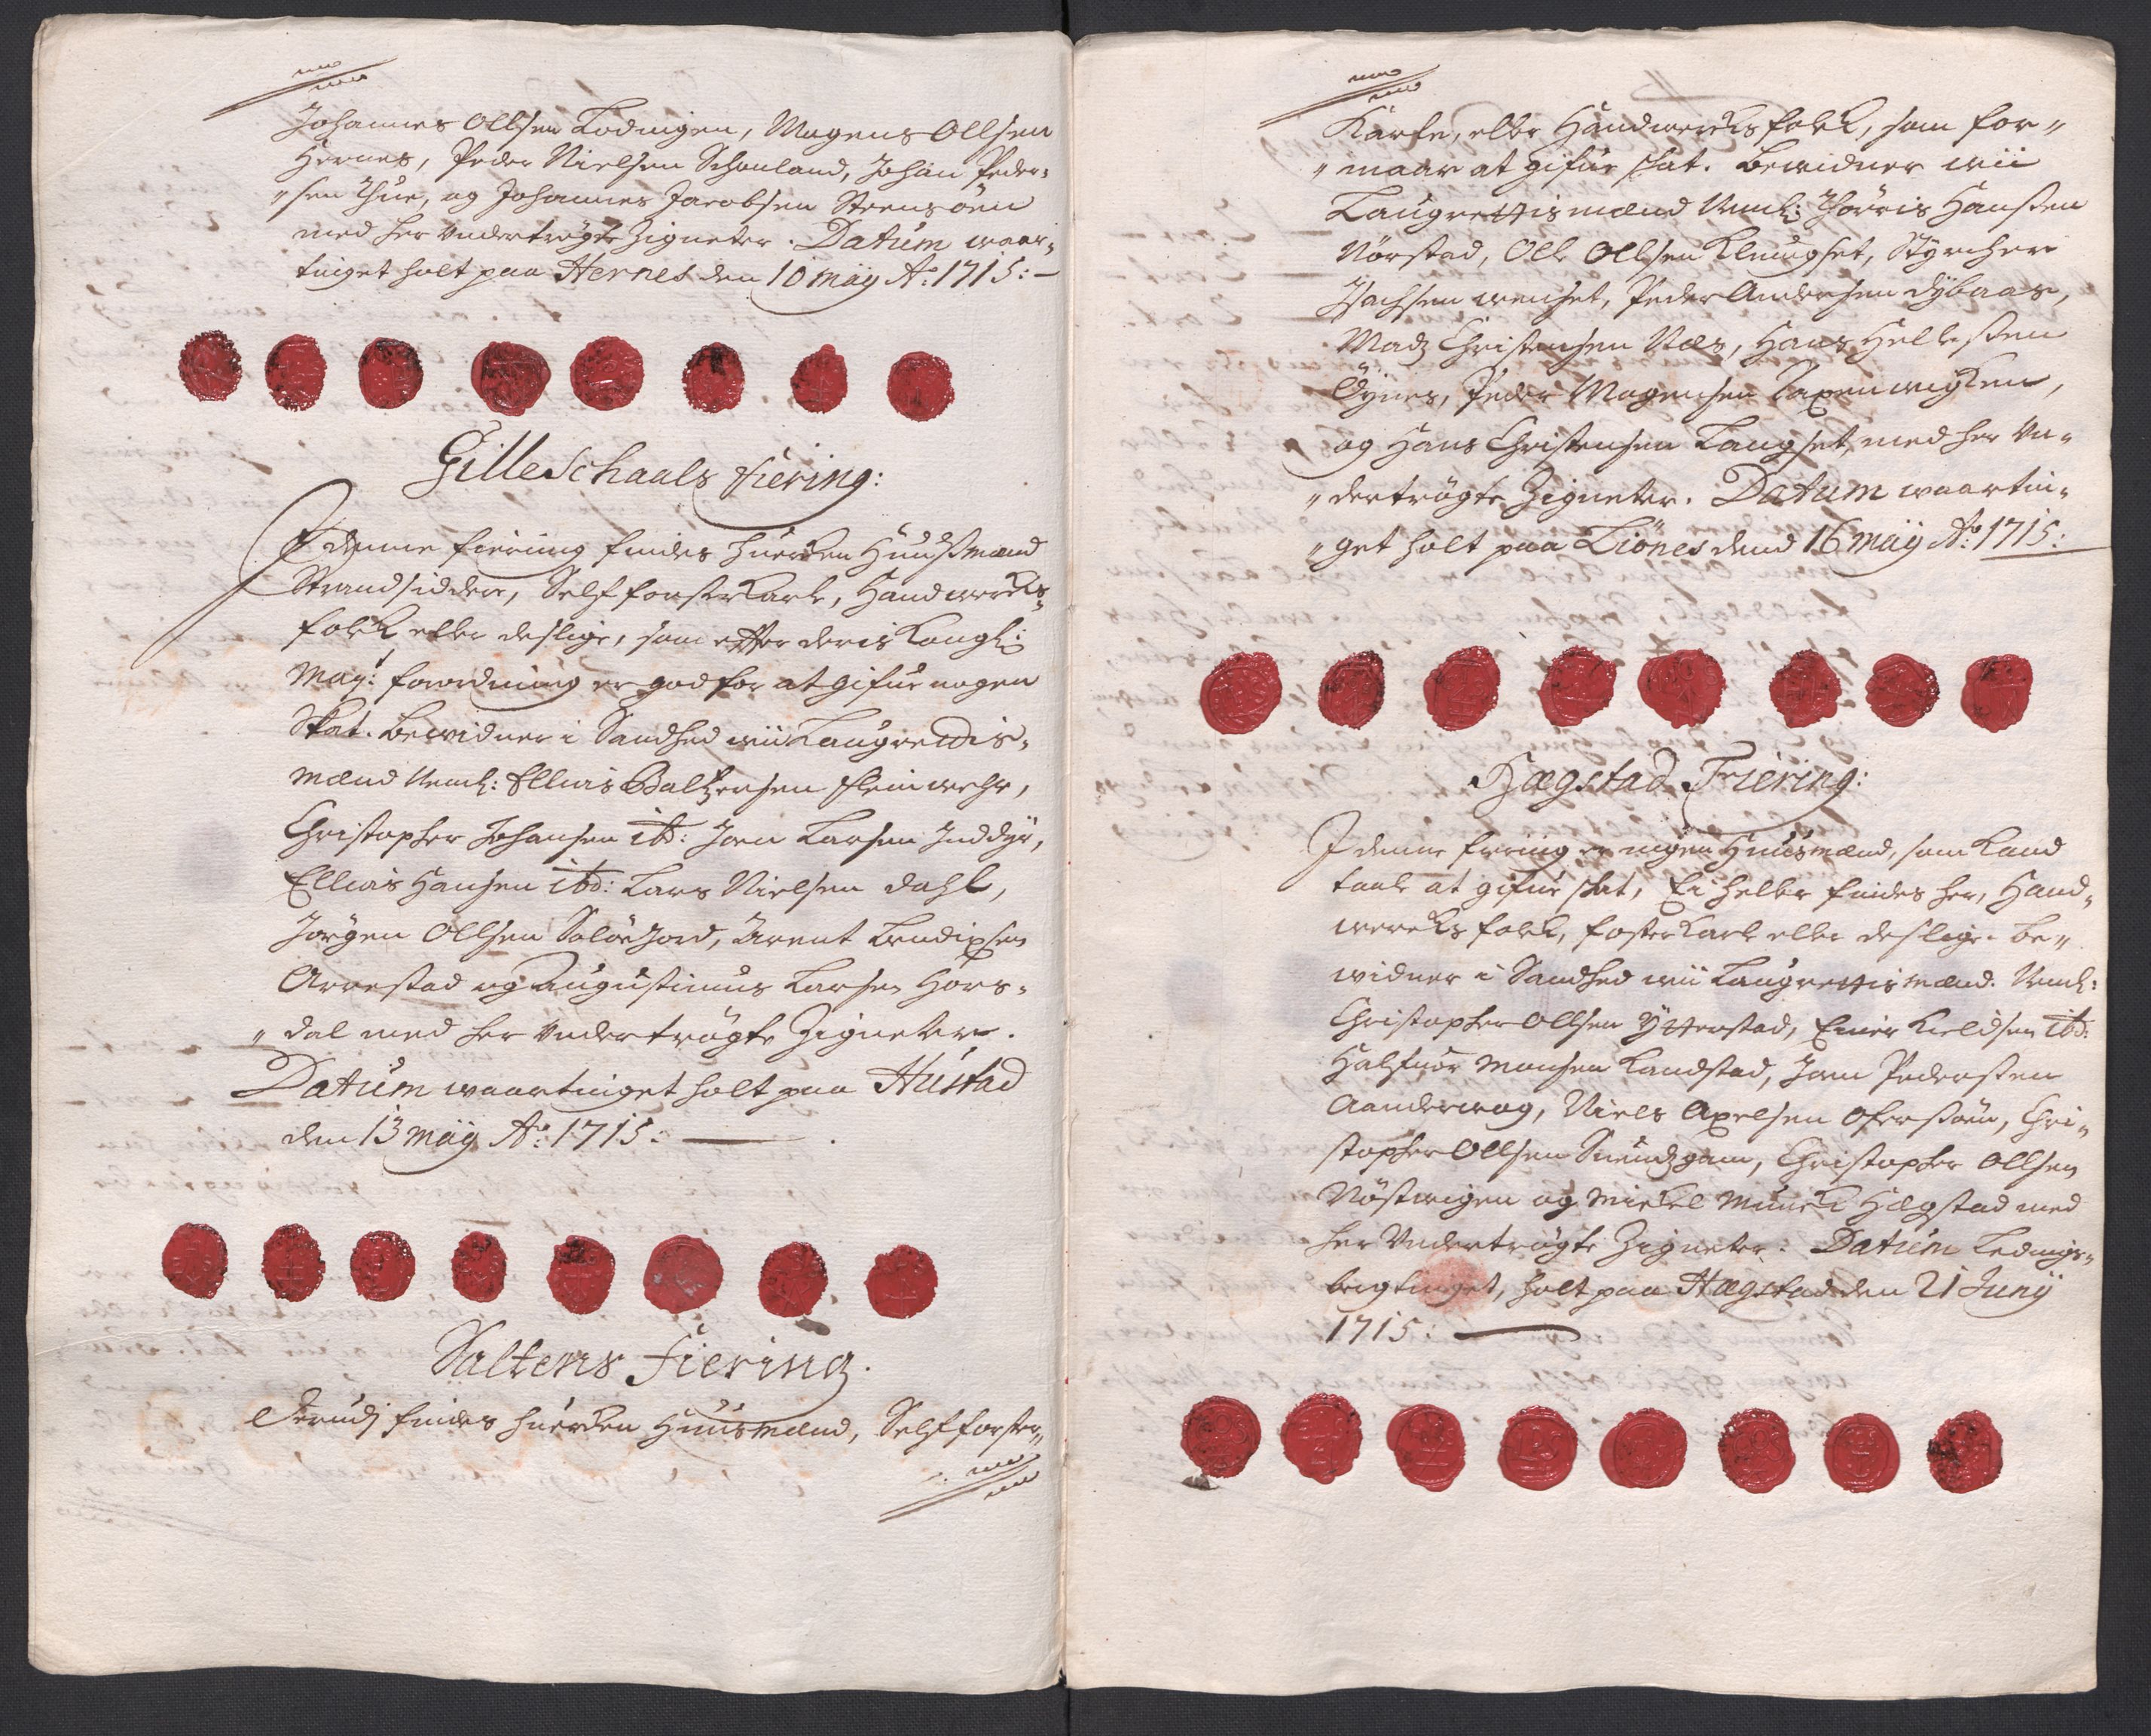 Johannes Ollsen Lodingen, Mogens Ollsen
Hernes, Peder Nielsen Schonland, Johan Peder-
"sen Thue, og Johannes Jacobsen Steensöen
med her undertrögte Zigneter. Datum waar-
tinget holt paa Hernes den 10 maÿ Ao: 1715:
Gilleschaals fiering:
I denne fiering findes huercken Huusmænd
Strandsiddere, Selffosterkarle, Handwercks-
folck eller deslige, som efter deris Kongl:
May: forordning er god for at gifue nogen
Skat. bewidner i Sandhed wii Laugrettis-
mænd Neml: Ellias Baltzersen
Christopher Johansen ibd: Joen Larsen Inddÿr,
Ellias Hansen ibd: Lars Nielsen dahl,
Jörgen Ollsen Arent Bendixsen
Arrestad og Augustinus Larsen Hors-
"dal med her undertrögte Zigneter.
Datum waartinget holt paa Hustad
den 13 maÿ Ao: 1715:
Saltens fiering.
findes huercken Huusmænd, Selffoster"
Karle, eller Handwercksfolck, som for"
"maar at gifue skat. bewidner wii
Laugrettismænd Neml: Thorris Hanssen
Nörstad, Olle Ollsen Klungset, Styrcher
Isachsen wenset, Peder Andersen dÿbaas,
Madz Christensen Næs, Hans Hellessen
Öÿnes, Peder Mogensen Laxenwigken,
og Hans Christensen Langset, med her un-
"dertrögte Zigneter. Datum waartin-
"get holt paa Liönes dend 16 maÿ Ao: 1715:
Hægstad Friering:
I denne friring er ingen Huusmænd, som kand
taale at gifue skat, Ei heller findes her, Hand-
wercksfolck, fosterkarle eller deslige. be"
widner i Sandhed wii Laugrettismænd. Neml:
Christopher Ollsen Ÿtterstad, Einer Kieldsen ibd:
Halfuor Monsen Landstad, Joen Pederssen
Aanderwog, Niels Axelsen Offersöen, Chri-
stopher Ollsen Christopher Ollsen
Nöstwigen og Mickel Munck Hægstad med
her Undertrögte Zigneter. Datum Ledings-
berg tinget, holt paa Hægstad den 21 Junÿ
1715: